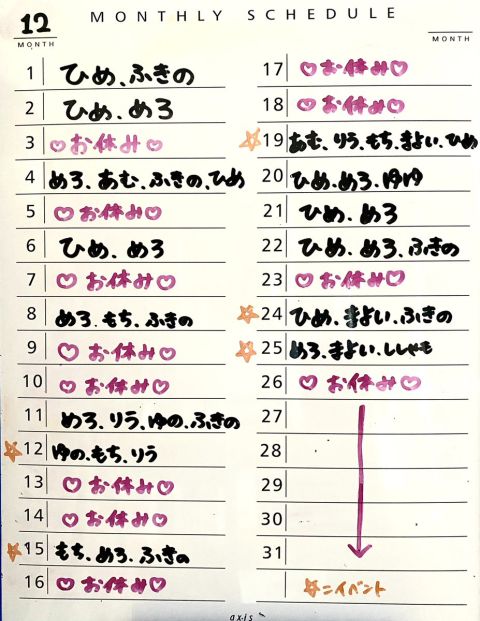 12 MONTHLY SCHEDULE
MONTH
MONTH
1 ひめ、ふきの
2 ひめ、めろ
3 ♡お休み♡
4 めろ、あむ、ふきの、ひめ
5 ♡お休み♡
6 ひめ、めろ
7 ♡お休み♡
8 めろ、もち、ふきの
9 ♡お休み♡
10 ♡お休み♡
11 めろ、りう、ゆの、ふきの
☆12 ゆの、もち、りう
13 ♡お休み♡
14 ♡お休み♡
☆15 もち、めろ、ふきの
16 ♡お休み♡
17 ♡お休み♡
18 ♡お休み♡
☆19 あむ、りう、もち、まよい、ひめ
20 ひめ、めろ、ゆゆ
21 ひめ、めろ
22 ひめ、めろ、ふきの
23 ♡お休み♡
☆24 ひめ、まよい、ふきの
☆25 めろ、まよい、ししゃも
26 ♡お休み♡
27
28
29
30
31
☆=イベント
axis